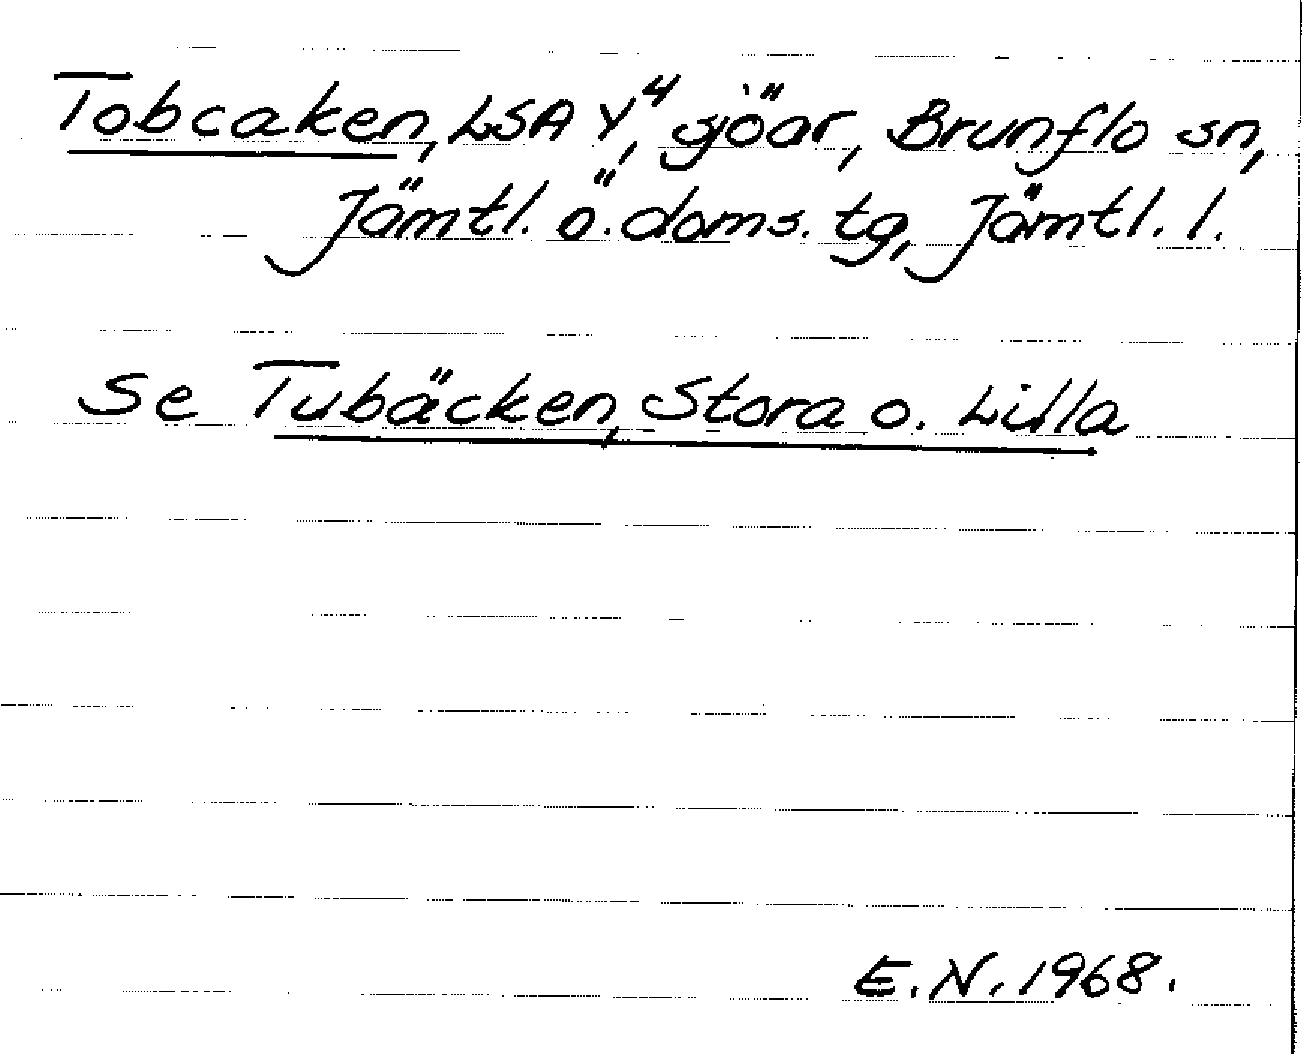 Tobcaken, LSA Y⁴, sjöar, Brunflo sn,
Jämtl. ö. doms. tg, Jämtl. l.
Se Tubäcken, Stora o. Lilla
E.N. 1968.